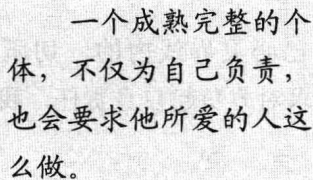 一个成熟完整的个
体，不仅为自己负责，
也会要求他所爱的人这
么做。